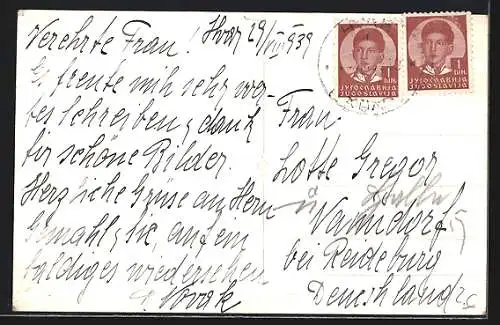 Verehrte Frau! Hvar 29/VIII 939
G. freute mich sehr wer-
tes schreiben, dank
für schöne Bilder.
Herzliche Grüse an Hern
Gemahl, Sie, auf ein
baldiges wiedersehen
Novak
ЈУГОСЛАВИЈА
JUGOSLAVIJA
1 DIN.
ЈУГОСЛАВИЈА
JUGOSLAVIJA
1 DIN.
Frau
Lotte Gregor
bei Reideburg
Deneshland